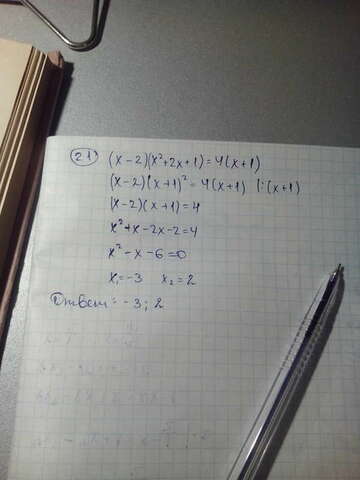 21) (x-2)(x²+2x+1)=4(x+1)
(x-2)(x+1)²=4(x+1) |:(x+1)
(x-2)(x+1)=4
x²+x-2x-2=4
x²-x-6=0
x₁=-3 x₂=2
Ответ: -3; 2